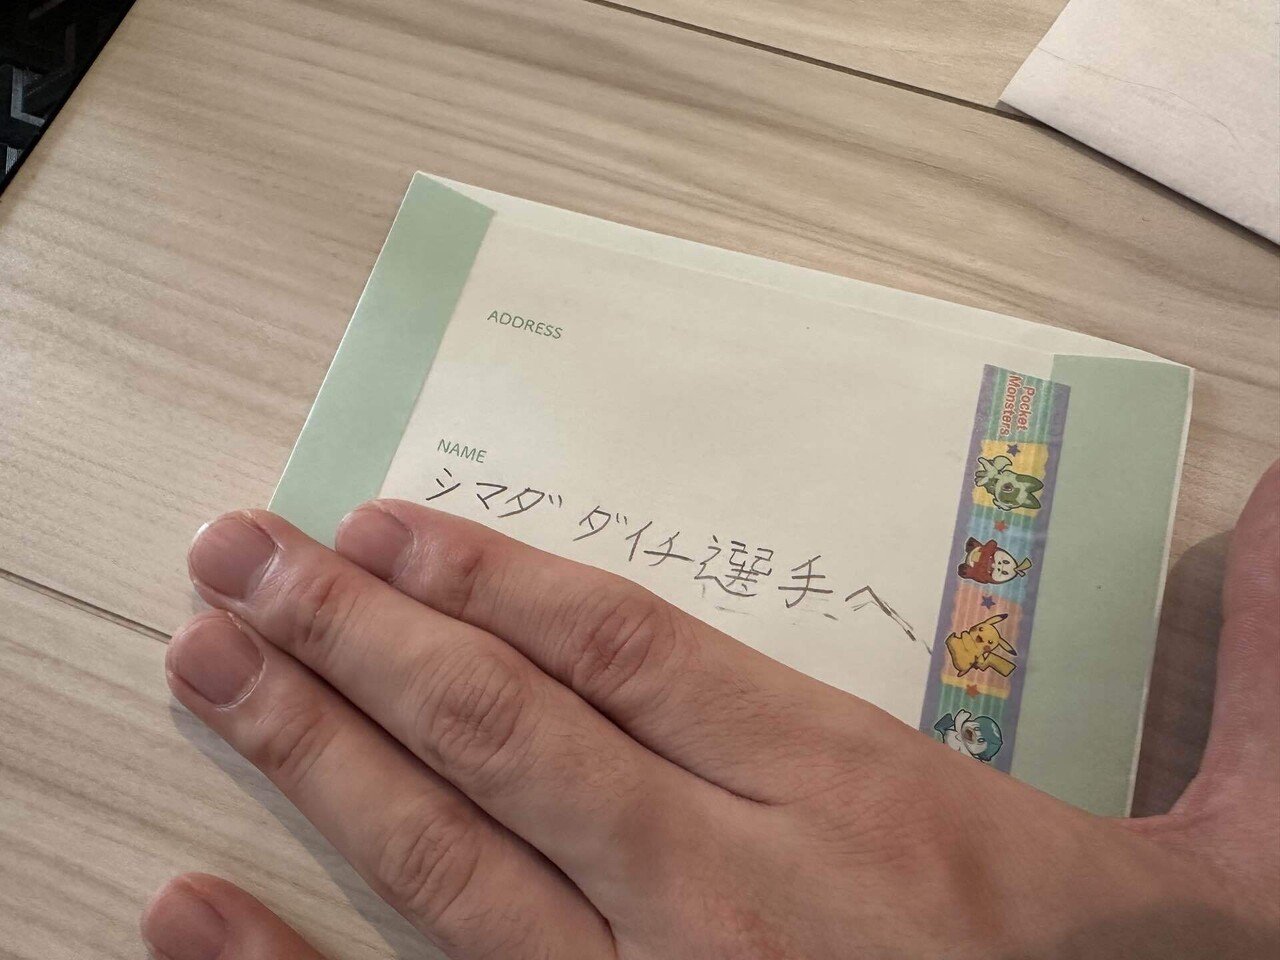 ADDRESS
NAME
シマダ ダイチ選手へ
Pocket
Monsters